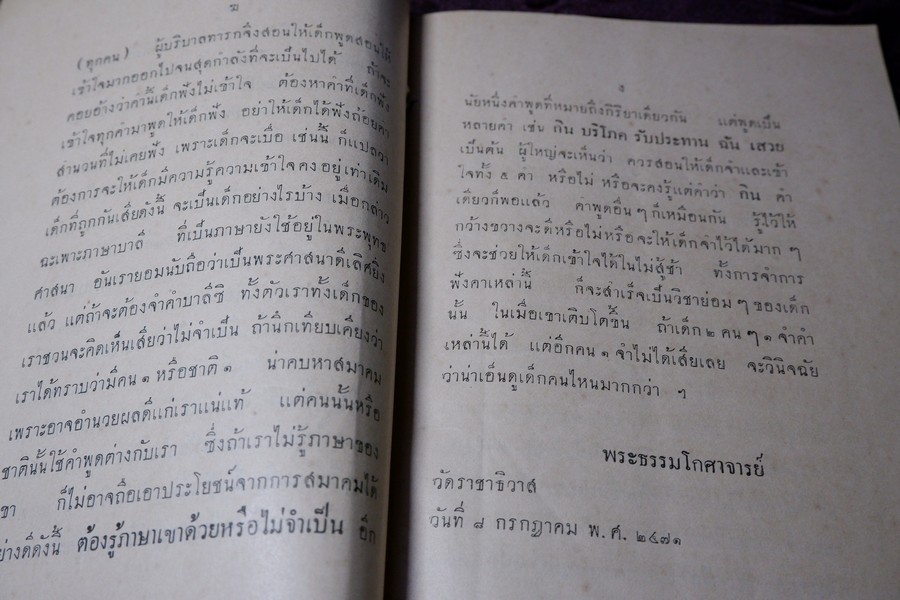 ฆ
(ทุกคน) ผู้บริบาลทารกจึงสอนให้เด็กพูดสอนให้
เข้าใจมากออกไปจนสุดกำลังที่จะเป็นไปได้ ถ้าจะ
คอยอ้างว่าคำนี้เด็กฟังไม่เข้าใจ ต้องหาคำที่เด็กฟัง
เข้าใจทุกคำมาพูดให้เด็กฟัง อย่าให้เด็กได้ฟังถ้อยคำ
สำนวนที่ไม่เคยฟัง เพราะเด็กจะเบื่อ เช่นนี้ ก็แปลว่า
ต้องการจะให้เด็กมีความรู้ความเข้าใจคงอยู่เท่าเดิม
เด็กที่ถูกกันเสียดังนี้ จะเป็นเด็กอย่างไรบ้าง เมื่อกล่าว
ฉะเพาะภาษาบาลี ที่เป็นภาษายังใช้อยู่ในพระพุทธ
ศาสนา อันเรายอมนับถือว่าเป็นพระศาสนาดีเลิศยิ่ง
แล้ว แต่ถ้าจะต้องจำคำบาลีซิ ทั้งตัวเราทั้งเด็กของ
เราชวนจะคิดเห็นเสียว่าไม่จำเป็น ถ้านึกเทียบเคียงว่า
เราได้ทราบว่ามีคน ๑ หรือชาติ ๑ น่าคบหาสมาคม
เพราะอาจอำนวยผลดีแก่เราแน่แท้ แต่คนนั้นหรือ
ชาตินั้นใช้คำพูดต่างกับเรา ซึ่งถ้าเราไม่รู้ภาษาของ
ขา ก็ไม่อาจถือเอาประโยชน์จากการสมาคมได้
ย่างดีดังนี้ ต้องรู้ภาษาเขาด้วยหรือไม่จำเป็น อีก
ง
นัยหนึ่งคำพูดที่หมายถึงกิริยาเดียวกัน แต่พูดเป็น
หลายคำ เช่น กิน บริโภค รับประทาน ฉัน เสวย
เป็นต้น ผู้ใหญ่จะเห็นว่า ควรสอนให้เด็กจำและเข้า
ใจทั้ง ๕ คำ หรือไม่ หรือจะคงรู้แต่คำว่า กิน คำ
เดียวก็พอแล้ว คำพูดอื่นๆ ก็เหมือนกัน รู้ไว้ให้
กว้างขวางจะดีหรือไม่หรือจะให้เด็กจำไว้ได้มาก ๆ
ซึ่งจะช่วยให้เด็กเข้าใจได้ในไม่สู้ช้า ทั้งการจำการ
ฟังคาเหล่านี้ ก็จะสำเร็จเป็นวิชาย่อมๆ ของเด็ก
นั้น ในเมื่อเขาเติบโตขึ้น ถ้าเด็ก ๒ คนๆ ๑ จำคำ
เหล่านี้ได้ แต่อีกคน ๑ จำไม่ได้เสียเลย จะวินิจฉัย
ว่าน่าเอ็นดูเด็กคนไหนมากกว่า ๆ
พระธรรมโกศาจารย์
วัดราชาธิวาส
วันที่ ๘ กรกฎาคม พ.ศ. ๒๔๗๑